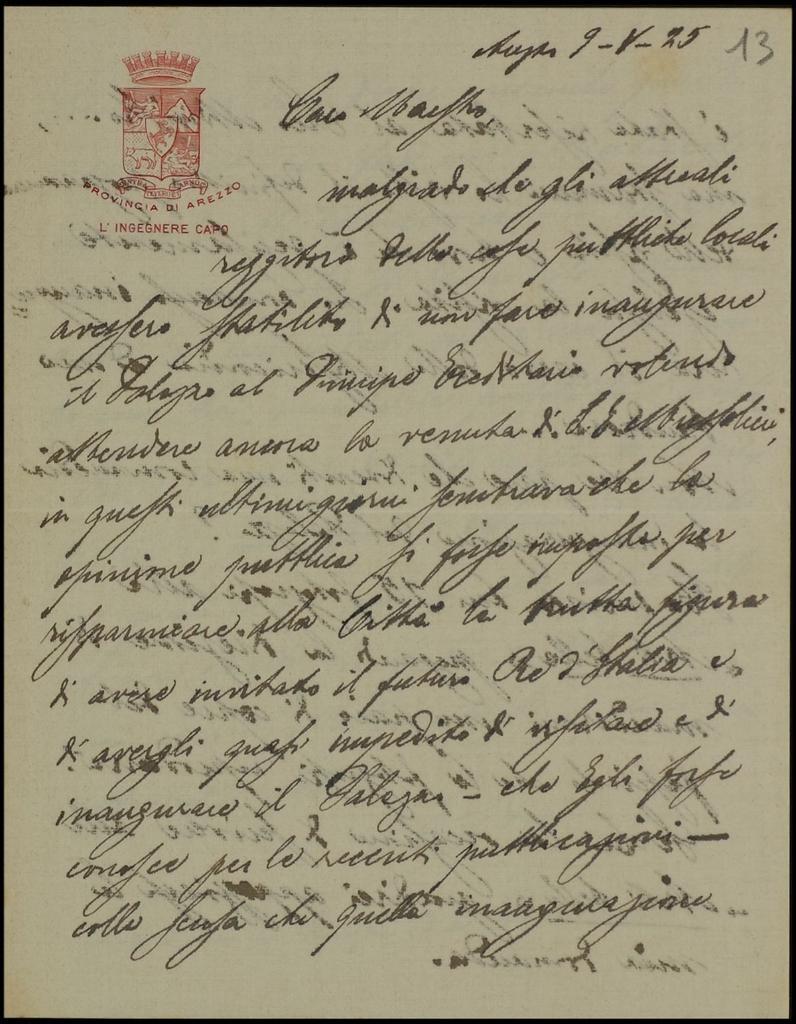 Arezzo 9-V-25
13
Caro Maestro,
PROVINCIA DI AREZZO
L'INGEGNERE CAPO
malgrado che gli attuali
reggitori delle cose pubbliche locali
avessero stabilito di non fare inaugurare
il Palazzo al Principe Ereditario volendo
attendere ancora la venuta di S. E. Mussolini,
in questi ultimi giorni sembrava che la
opinione pubblica si fosse imposta per
risparmiare alla Città la brutta figura
di avere invitato il futuro Re d'Italia e
di avergli quasi impedito di visitare e di
inaugurare il Palazzo - che Egli forse
conosce per le recenti pubblicazioni —
colla scusa che quella inaugurazione